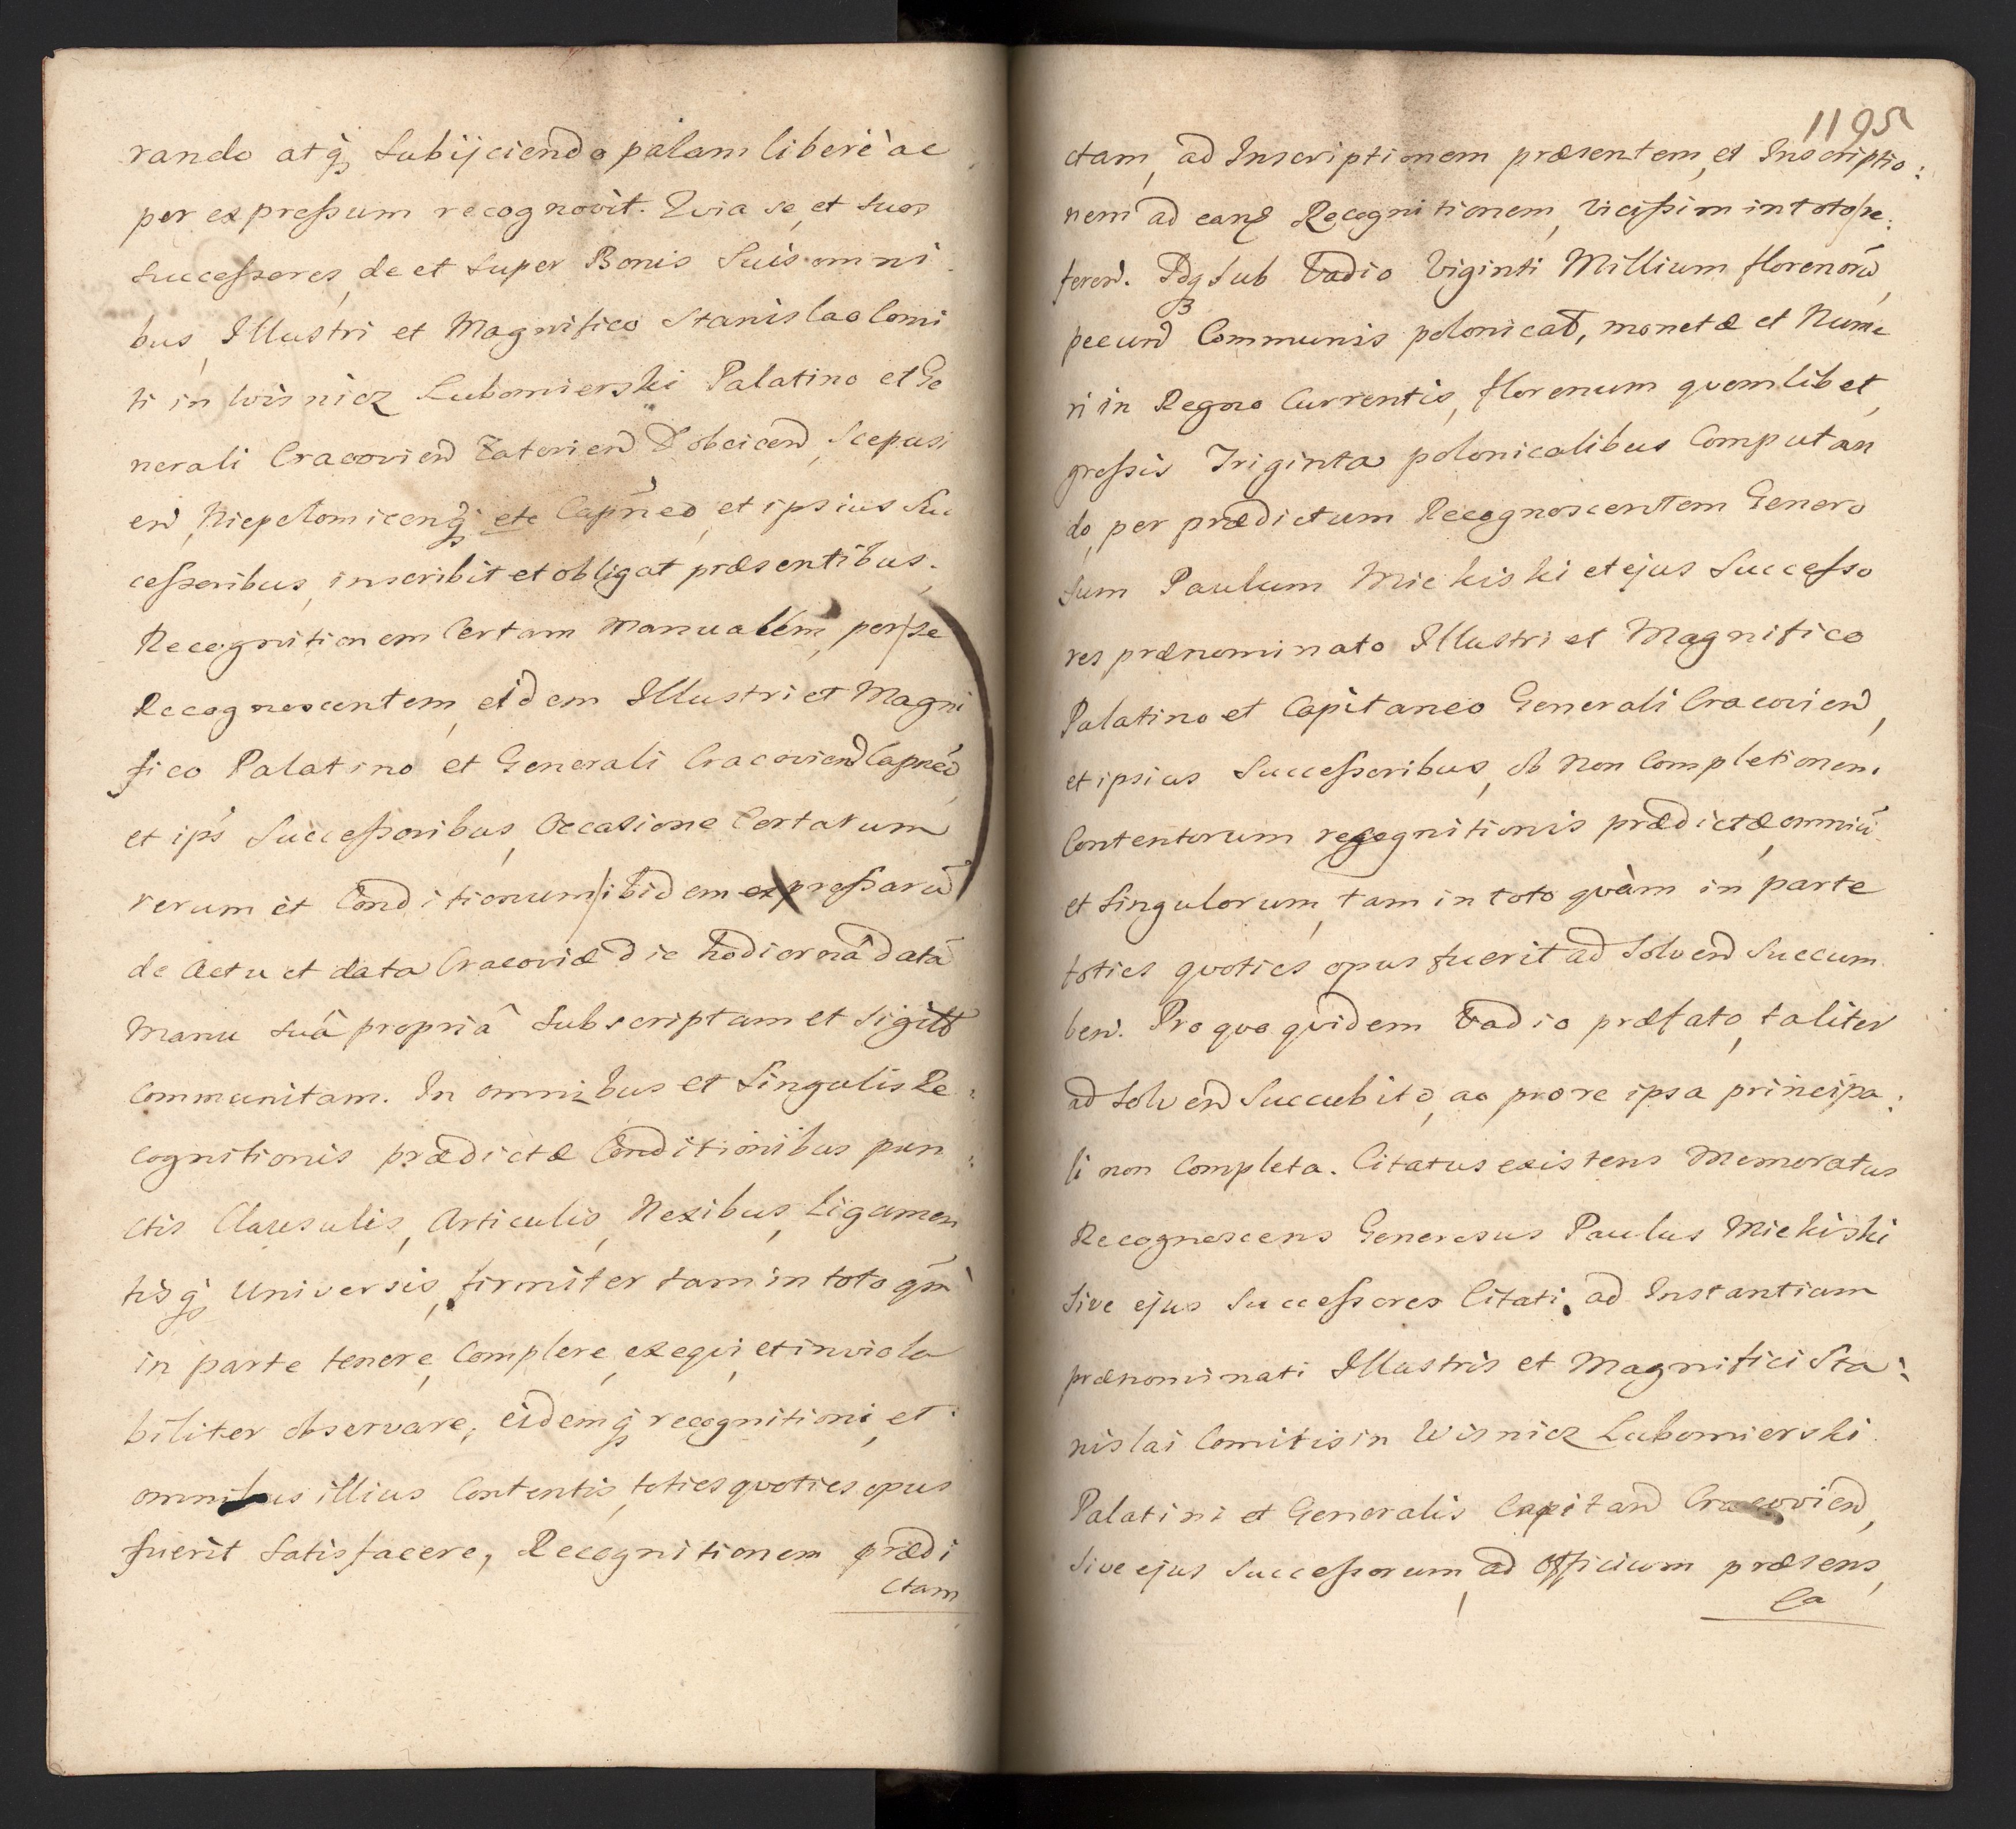 rando atq̃ Subijciendo palam liberè ac
per expreſsum recognovit. Quia se, et suos
Succeſsores, de et super Bonis Suis omni
bus, Illustri et Magnifico Stanislao Comi
ti in Wisnicz Lubomierski Palatino et Ge
nerali Cracovien̄ Zatorien̄ Dobcicen̄, Scepusi
en̄, Niepolomicenq̃ etc Capn̄eo, et ipsius Su
ceſsoribus, inscribit et obligat præsentibus.
Recognitionem Certam Manualem, per se
Recognoscentem, eidem Illustri et Magni
fico Palatino et Generali Cracovien̄ Capn̄eo,
et ips̄ Succeſsoribus, Occasione Certarum
rerum et Conditionum ibidem expreſsarū
de Actu et data Cracoviæ die hodiernâ datā
Manu suâ propriâ Subscriptam et Sigill̄
Communitam. In omnibus et Singulis Re:
cognitionis prædictæ Conditionibus pun:
ctis Clausulis, Articulis, Nexibus, Ligamen
tisq̃ Universis, firmiter tam in toto qm̄
in parte tenere, Complere, exequi, et inviola
biliter observare, eidemq̃ recognitioni, et
omnibus illius Contentis, toties quoties opus
fuerit Satisfacere, Recognitionem prædi
ctam
1195
ctam, ad Inscriptionem præsentem, et Inscriptio:
nem ad eand̄ Recognitionem, vicißim in toto re:
feren̄. Idq̃ Sub Vadio Viginti Millium florenorū,
pecun̄ Communis polonical̄, monetæ et Nume
ri in Regno Currentis, florenum quemlibet,
groſsis Triginta polonicalibus Computan
do, per prædictum Recognoscentem Genero
sum Paulum Miekiski et ejus Succeſso
res prænominato Illustri et Magnifico
Palatino et Capitaneo Generali Cracovien̄,
et ipsius Succeſsoribus, ob non Completionem
Contentorum recognitionis prædictæ, omniū
et Singulorum, tam in toto quàm in parte
toties quoties opus fuerit ad Solven̄ Succum
ben̄. Pro quo quidem Vadio præfato, taliter
ad Solven̄ Succubito, ac pro re ipsa principa:
li non Completa. Citatus existens Memoratus
Recognoscens Generosus Paulus Miekiski
Sive ejus Succeſsores Citati, ad Instantiam
prænominati Illustris et Magnifici Sta:
nislai Comitis in Wisnicz Lubomierski
Palatini et Generalis Capitan̄ Cracovien̄,
Sive ejus Succeſsorum, ad Officium præsens,
Ca